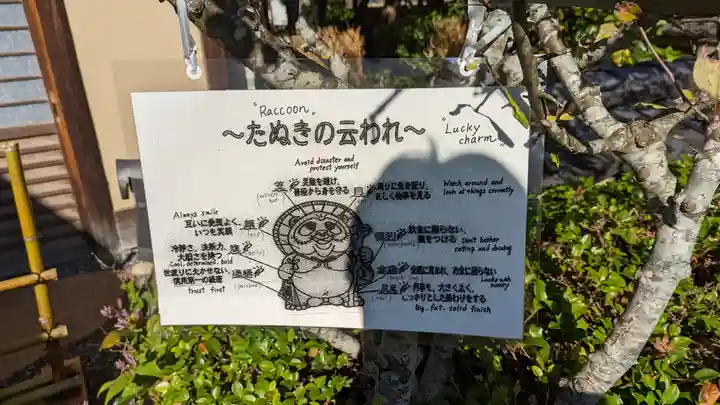 "Raccoon"
～たぬきの云われ～
"Lucky charm"
Avoid disaster and
protect yourself
笠
災難を避け、
普段から身を守る
目
周りに気を配り、
正しく物事を見る
Watch around and
look at things correctly
Always smile
互いに愛想よく、
いつも笑顔
顔
飲食に困らない、
気をつける
Don't bother
eating and drinking
冷静さ、決断力、
大胆さを持つ
Cool, determined, bold
世渡りに欠かせない、
信用第一の通帳
通帳
trust first
金運に恵まれ、お金に困らない
Lucky with
money
何事も、大きく太く、
しっかりとした終わりをする
Big, fat, solid finish